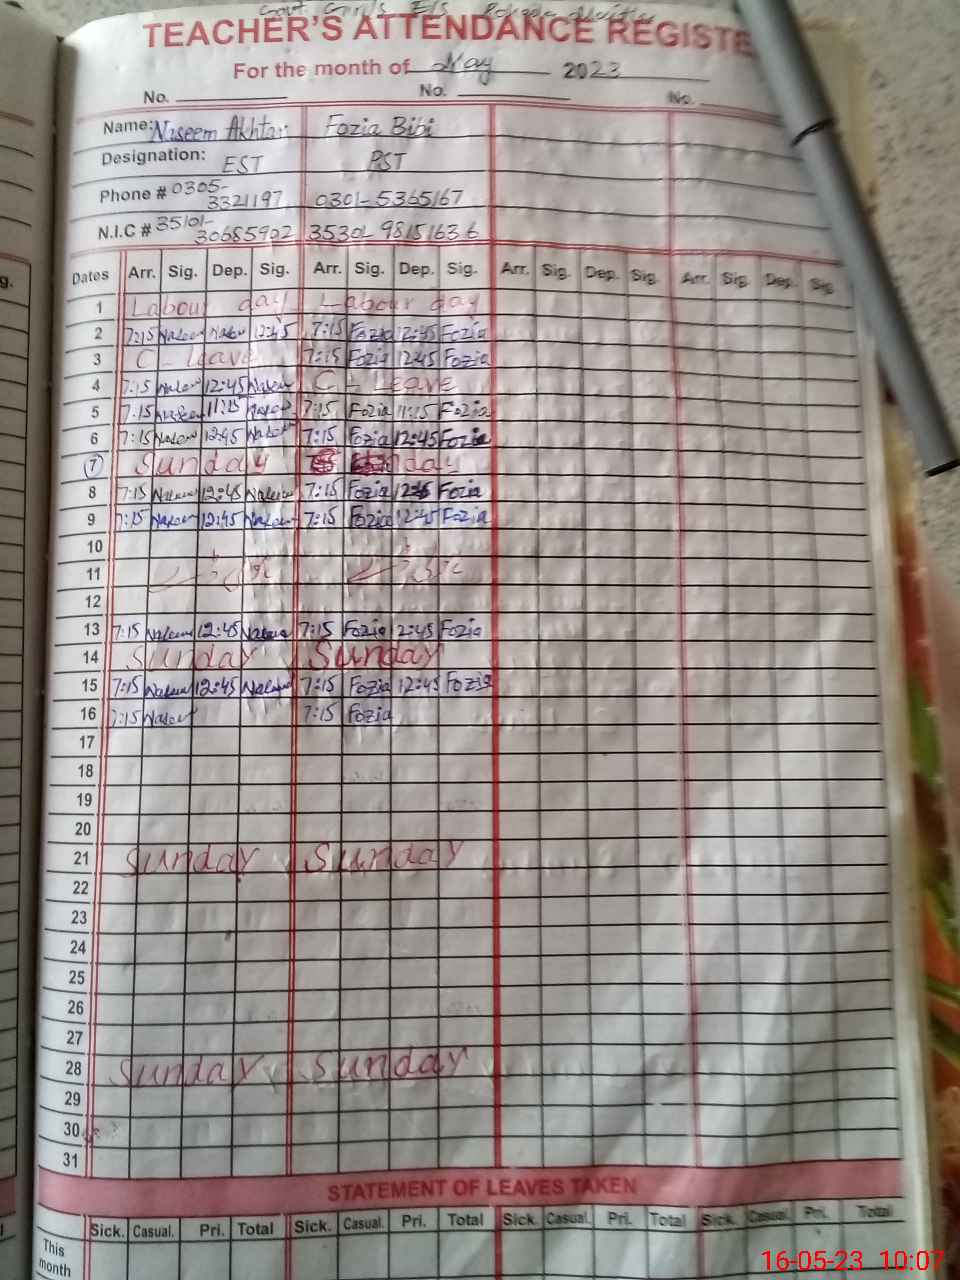 Govt. Girls E/S
TEACHER'S ATTENDANCE REGISTE
For the month of May 2023
No. No. No.
Name: Naseem Akhtar Fozia Bibi
Designation: EST PST
Phone # 0305-
3321197 0301-5365167
N.I.C # 35101-
30685902 35301-9815163 6
Dates Arr. Sig. Dep. Sig. Arr. Sig. Dep. Sig. Arr. Sig. Dep. Sig. Arr. Sig. Dep. Sig.
1 Labour day Labour day
2 7:15 Naseem 12:45 7:15 Fozia 12:45 Fozia
3 C-leave 7:15 Fozia 12:45 Fozia
4 7:15 Naseem 12:45 Naseem C-Leave
5 7:15 Naseem 11:15 Naseem 7:15 Fozia 11:15 Fozia
6 7:15 Naseem 12:45 Naseem 7:15 Fozia 12:45 Fozia
7 Sunday nday
8 7:15 Naseem 12:45 Naseem 7:15 Fozia 12:45 Fozia
9 7:15 Naseem 12:45 Naseem 7:15 Fozia 12:45 Fozia
10
11
12
13 7:15 Naseem 12:45 Naseem 7:15 Fozia 12:45 Fozia
14 Sunday Sunday
15 7:15 Naseem 12:45 Naseem 7:15 Fozia 12:45 Fozia
16 7:15 Naseem 7:15 Fozia
17
18
19
20
21 Sunday Sunday
22
23
24
25
26
27
28 Sunday Sunday
29
30
31
STATEMENT OF LEAVES TAKEN
Sick. Casual. Pri. Total Sick. Casual. Pri. Total Sick. Casual. Pri. Total Sick. Casual. Pri. Total
This
month
16-05-23 10:07